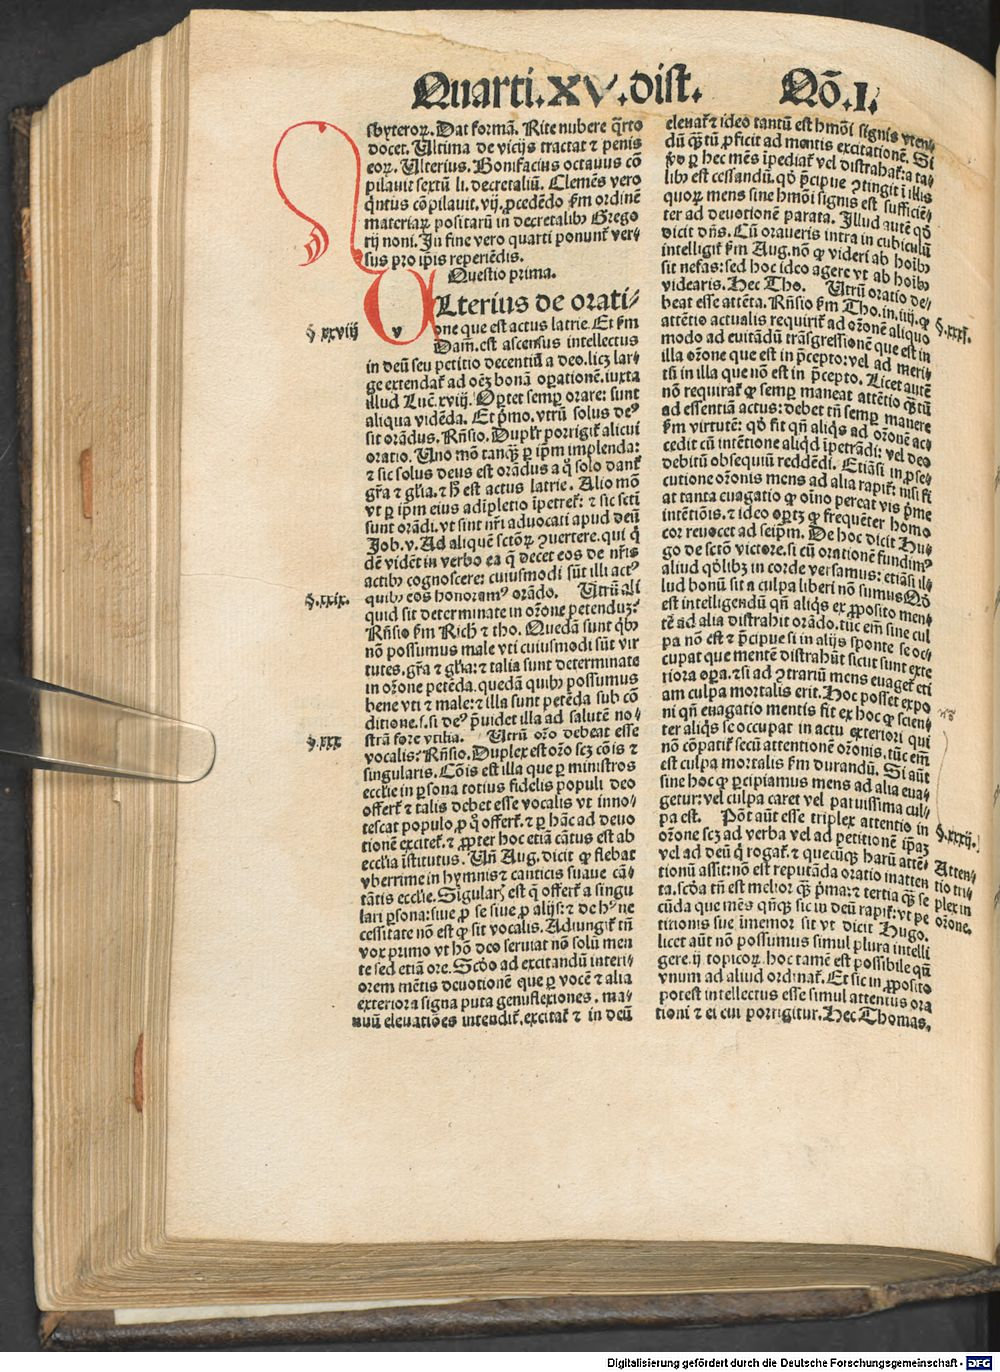 Quarti.XV.dist. Qō.I.
sbyteroꝝ. Dat formā. Rite nubere q̄rto
docet. Ultima de vicijs tractat ⁊ penis
eoꝝ. Ulterius. Bonifacius octauus cō
pilauit sextū li. decretaliū. Clemēs vero
q̄ntus cōpilauit. vij. ꝓcedēdo ẜm ordinē
materiaꝝ positarū in decretalibꝰ Grego
rij noni. In fine vero quarti ponunt᷑ ver⸗
sus pro ip̄is reperiēdis.
Questio prima.
§ xxviij
ULterius de orati⸗
one que est actus latrie. Et ẜm
Dam̄. est ascensus intellectus
in deū seu petitio decentiū a deo. licꝫ lar⸗
ge extendat᷑ ad oēꝫ bonā oꝑationē. iuxta
illud Luc̄. xviij. Oꝑtet semꝑ orare: sunt
aliqua vidēda. Et p̄mo. vtrū solus de⁹
sit orādus. Rn̄sio. Dupl̄r porrigit᷑ alicui
oratio. Uno mō tanqꝫ ꝑ ip̄m implenda:
⁊ sic solus deus est orādus a q̊ solo dant᷑
gr̄a ⁊ gl̄ia. ⁊ h̄ est actus latrie. Alio mō
vt ꝑ ip̄m eius adīpletio īpetret᷑: ⁊ sic sctī
sunt orādi. vt sint nr̄i aduocati apud deū
Job. v. Ad aliquē sctōꝝ ꝯuertere. qui q̇
dē vidēt in verbo ea q̄ decet eos de nr̄is
actibꝰ cognoscere: cuiusmodi sūt illi act⁹
§. xxix.
quibꝰ eos honoram⁹ orādo. Utrū ali
quid sit determinate in or̄one petenduꝫ?
Rn̄sio ẜm Rich̄ ⁊ tho. Quedā sunt q̇bꝰ
nō possumus male vti cuiusmodi sūt vir
tutes. gr̄a ⁊ gl̄ia: ⁊ talia sunt determinate
in or̄one petēda. quedā quibꝰ possumus
bene vti ⁊ male: ⁊ illa sunt petēda sub cō
ditione. s. si de⁹ p̄uidet illa ad salutē no⸗
§. xxx
strā fore vtilia. Utrū or̄o debeat esse
vocalis? Rn̄sio. Duplex est or̄o scꝫ cōis ⁊
singularis. Cōis est illa que ꝑ ministros
ecclīe in ꝑsona totius fidelis populi deo
offert᷑. ⁊ talis debet esse vocalis vt inno⸗
tescat populo, ꝓ q̊ offert᷑. ⁊ ꝑ hāc ad deuo
tionē excitet᷑. ⁊ ꝓpter hoc etiā cātus est ab
ecclīa īstitutus. Un̄ Aug. dicit ꝙ flebat
vberrime in hymnis ⁊ canticis suaue cā⸗
tātis ecclīe. Singularꝭ est q̄ offert᷑ a singu
lari ꝑsona: siue ꝓ se siue ꝓ alijs: ⁊ de h⁹ ne
cessitate nō est ꝙ sit vocalis. Adiungit᷑ tn̄
vox primo vt hō deo seruiat nō solū men
te sed etiā ore. Scd̄o ad excitandū interi⸗
orem mētis deuotionē que ꝑ vocē ⁊ alia
exteriora signa puta genuflexiones. ma⸗
nuū eleuatiōes intendit᷑. excitat᷑ ⁊ in deū
eleuat᷑ ⁊ ideo tantū est hmōi signis vten⸗
dū qꝫtū ꝓficit ad mentis excitationē. Si
ꝟo ꝑ hec mēs īpediat᷑ vel distrahat᷑: a ta⸗
libꝰ est cessandū. qd̓ p̄cipue ꝯtingit ī illis
quoꝝ mens sine hmōi signis est sufficiē⸗
ter ad deuotionē parata. Illud autē qd̓
dicit dn̄s. Cū oraueris intra in cubiculū
intelligit᷑ ẜm Aug. nō ꝙ videri ab hoībꝰ
sit nefas: sed hoc ideo agere vt ab hoībꝰ
videaris. Hec Tho. Utrū oratio de⸗
§. xxxj.
beat esse attēta. Rn̄sio ẜm Tho. in. iiij. ꝙ
attētio actualis requirit᷑ ad or̄onē aliquo
modo ad euitādū trāsgressionē que est in
illa or̄one que est in p̄cepto: vel ad meri⸗
tū in illa que nō est in p̄cepto. Licet autē
nō requirat᷑ ꝙ semꝑ maneat attētio qꝫtū
ad essentiā actus: debet tn̄ semꝑ manere
ẜm virtutē: qd̓ fit qn̄ aliq̇s ad or̄onē ac⸗
cedit cū intētione aliqd̓ īpetrādi: vel deo
debitū obsequiū reddēdi. Etiāsi in ꝓse⸗
cutione or̄onis mens ad alia rapit᷑: nisi fi
at tanta euagatio ꝙ oīno pereat vis p̄me
intētiōis. ⁊ ideo oꝑtꝫ ꝙ frequēter homo
cor reuocet ad seip̄m. De hoc dicit Hu⸗
go de sctō victore. si cū orationē fundim⁹
aliud qd̓libꝫ in corde versamus: etiāsi il⸗
lud bonū sit a culpa liberi nō sumus Qd̓
est intelligendū qn̄ aliq̇s ex ꝓposito men⸗
tē ad alia distrahit orādo. tūc em̄ sine cul
pa nō est ⁊ p̄cipue si in alijs sponte se oc⸗
cupat que mentē distrahūt sicut sunt exte
riora oꝑa. ⁊ si ad ꝯtrariū mens euaget᷑ eti
am culpa mortalis erit. Hoc posset expo
ni qn̄ euagatio mentis fit ex hoc ꝙ scien⸗
ter aliq̇s se occupat in actu exteriori qui
nō cōpatit᷑ secū attentionē or̄onis. tūc em̄
est culpa mortalis ẜm durandū. Si aūt
sine hoc ꝙ ꝑcipiamus mens ad alia eua⸗
getur: vel culpa caret vel paruissima cul⸗
pa est. Pōt aūt esse triplex attentio in
§. xxxij.
or̄one scꝫ ad verba vel ad petitionē ip̄aꝫ
vel ad deū q̄ rogat᷑. ⁊ quecūqꝫ harū attē⸗
tionū assit: nō est reputāda oratio inatten
ta. scd̄a tn̄ est melior qꝫ p̄ma: ⁊ tertia qꝫ se
cūda que mēs qn̄qꝫ sic in deū rapit᷑: vt pe
titionis sue īmemor sit vt dicit Hugo.
Atten⸗
tio tri⸗
plex in
or̄one.
licet aūt nō possumus simul plura intelli
gere. ij topicoꝝ. hoc tamē est possibile qn̄
vnum ad aliud ordinat᷑. Et sic in ꝓposito
potest intellectus esse simul attentus ora
tioni ⁊ ei cui porrigitur. Hec Thomas.
Digitalisierung gefördert durch die Deutsche Forschungsgemeinschaft - DFG